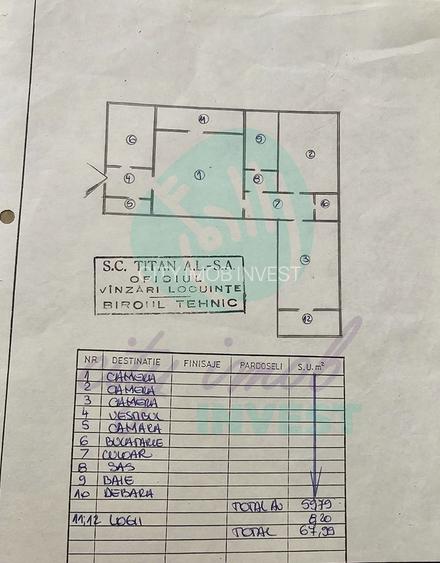 11
6
9
2
4
1
8
5
7
10
3
S.C. TITAN AL.-S.A.
OFICIUL
VÎNZĂRI LOCUINȚE
BIROUL TEHNIC
IMOB INVEST
12
NR. DESTINATIE FINISAJE PARDOSELI S.U. m²
1 CAMERA
2 CAMERA
3 CAMERA
4 VESTIBUL
5 CAMARA
6 BUCATARIE
7 CULOAR
8 SAS
9 BAIE
10 DEBARA
TOTAL AU 59,79
11,12 LOGII 8,20
TOTAL 67,99
city imob
INVEST